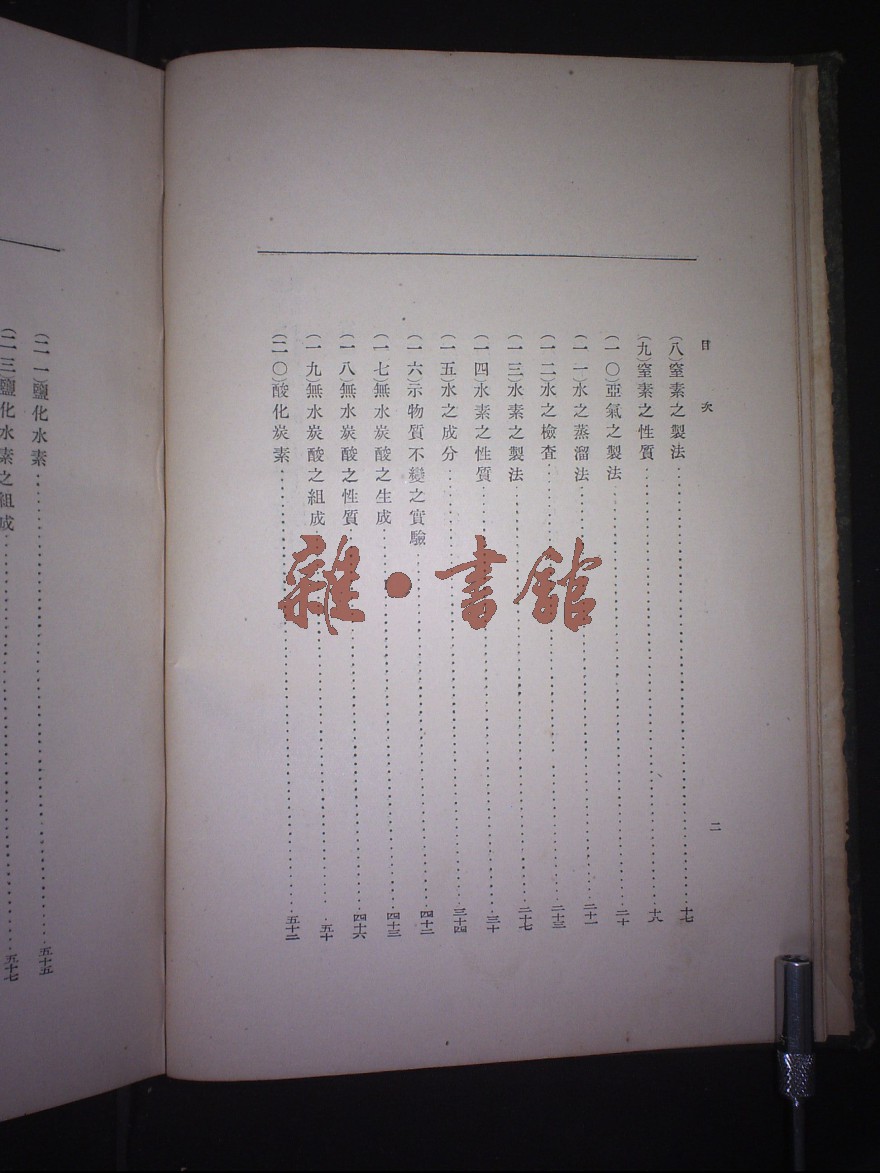 目次
二
(八)窒素之製法 十七
(九)窒素之性質 十九
(一〇)亞氣之製法 二十
(一一)水之蒸溜法 二十一
(一二)水之檢查 二十三
(一三)水素之製法 二十七
(一四)水素之性質 三十
(一五)水之成分 三十四
(一六)示物質不變之實驗 四十二
(一七)無水炭酸之生成 四十三
(一八)無水炭酸之性質 四十六
(一九)無水炭酸之組成 五十
(二〇)酸化炭素 五十二
(二一)鹽化水素 五十五
(二三)鹽化水素之組成 五十七
雜・書館